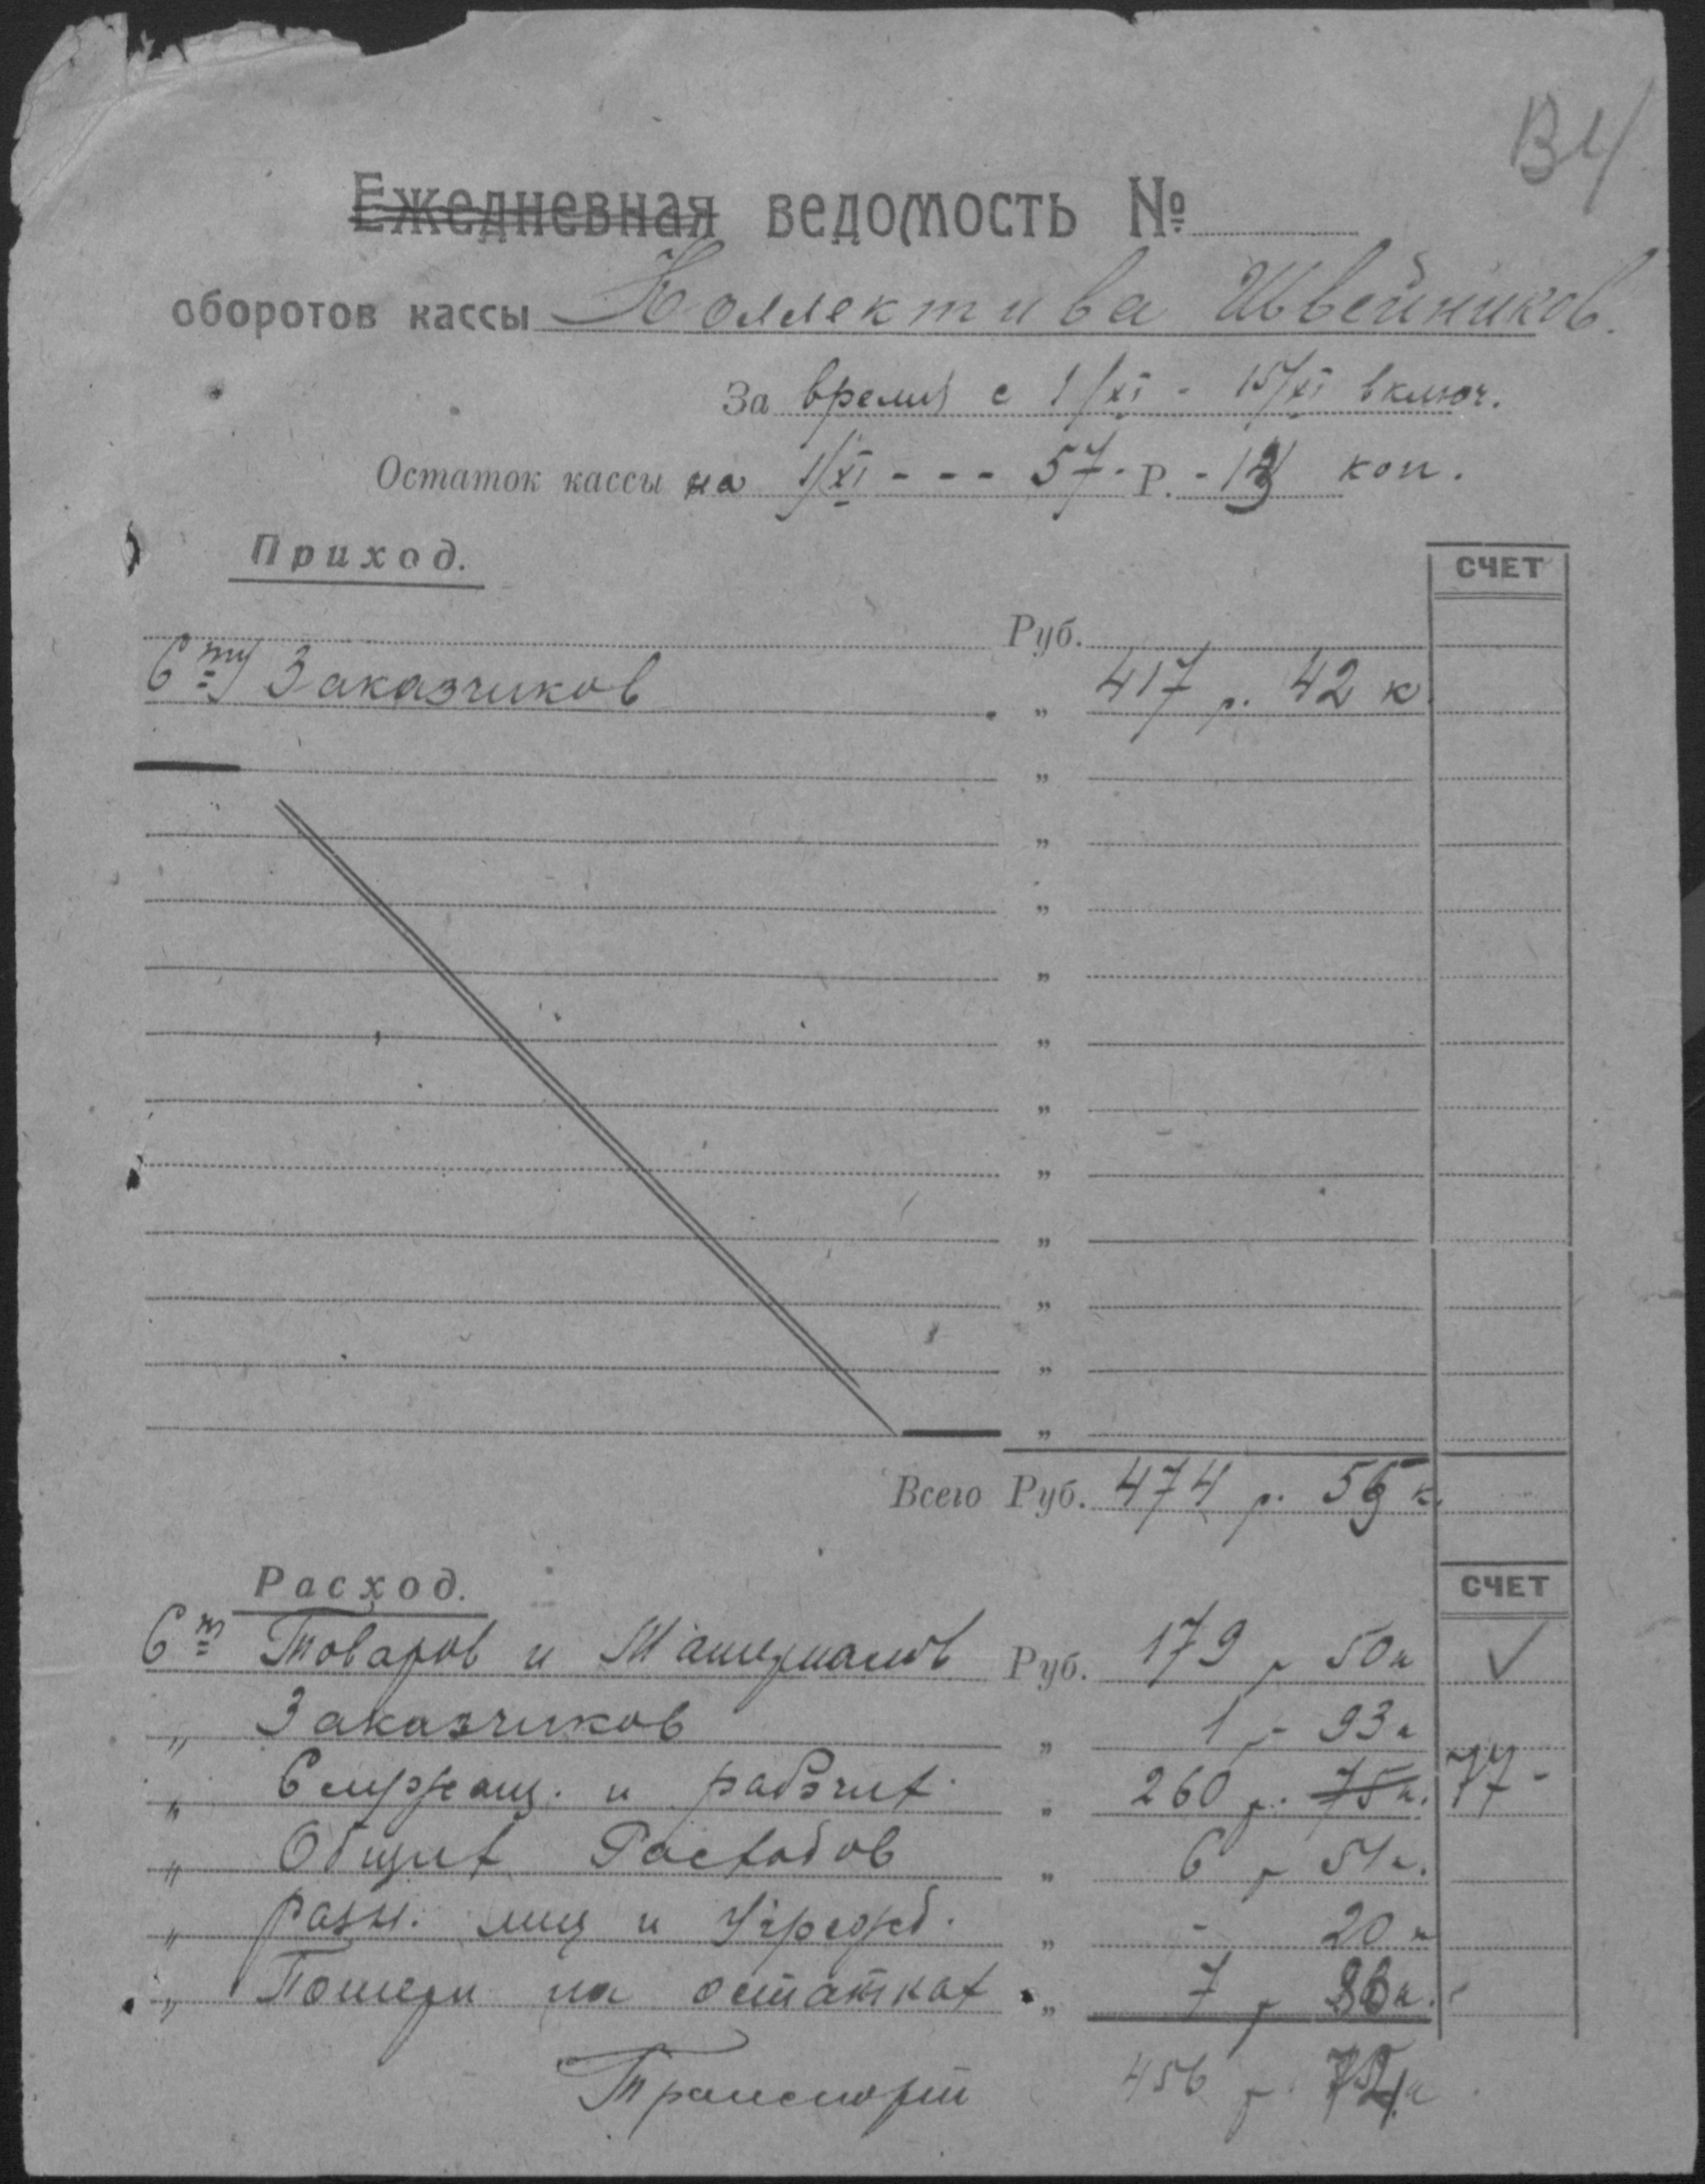 В4
Ежедневная ведомость №
оборотов кассы Коллектива Швейников.
За время с 1/XI - 15/XI включ.
Остаток кассы на 1/XI - - - 57 - Р. - 13 коп.
Приход.
СЧЕТ
Руб.
Сту Заказчиков " 417 р. 42 к.
"
"
"
"
"
"
"
"
"
"
"
Всего Руб. 474 р. 55 к.
Расход.
СЧЕТ
Ст Товаров и Материалов Руб. 179 р 50 к ✓
" Заказчиков " 1 р 93 к
" Служащ. и рабочих " 260 р. 75 к. 77 -
" Общих Расходов " 6 р 51 к.
" разн. лиц и Учрежд. " - 20 к
" Потери на остатках " 7 р 86 к.
Транспорт 456 р.